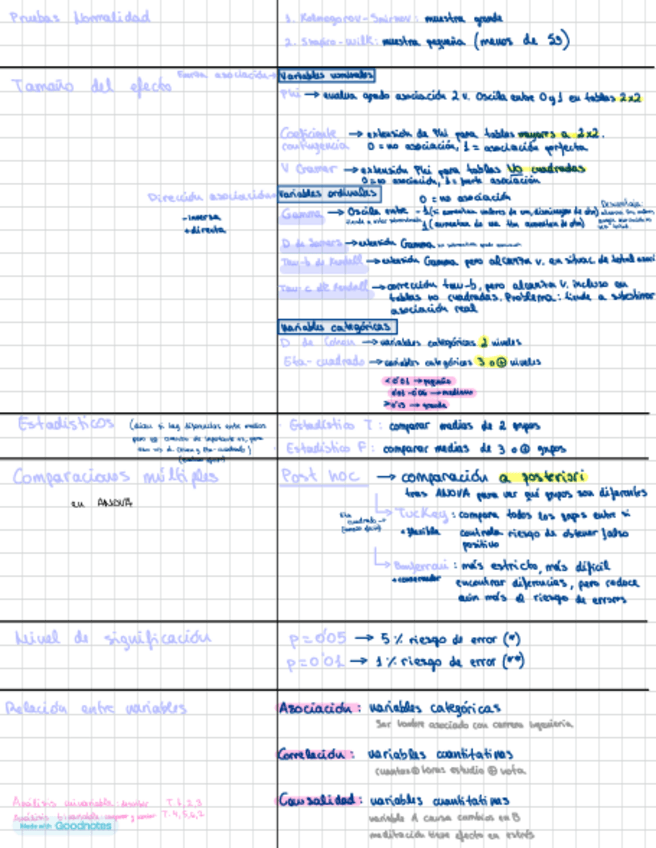 Pruebas Normalidad
1. Kolmogorov-Smirnov: muestra grande
2. Shapiro-Wilk: muestra pequeña (menos de 50)
Tamaño del efecto
Fuerza asociación →
Variables nominales
Phi → evalua grado asociación 2 v. Oscila entre 0 y 1 en tablas 2x2
Coeficiente contingencia → extensión de Phi para tablas mayores a 2x2.
0 = no asociación, 1 = asociación perfecta
V Cramer → extensión Phi para tablas NO cuadradas
0 = no asociación, 1 = fuerte asociación
Dirección asociación →
- inversa
+ directa
Variables ordinales
0 = no asociación
Gamma → Oscila entre -1 (si aumentan valores de una, disminuyen de otra)
1 (aumentan de una tbn aumentan de otra)
Desventaja:
D de Somers → extensión Gamma
Tau-b de Kendall → extensión Gamma pero alcanza v. en situac. de total asoci
Tau-c de Kendall → corrección tau-b, pero alcanza v. incluso en
tablas no cuadradas. Problema: tiende a subestimar
asociación real
Variables categóricas
D de Cohen → variables categóricas 2 niveles
Eta-cuadrado → variables categóricas 3 o ⊕ niveles
< 0'01 → pequeño
0'01 - 0'06 → mediano
→ grande
Estadísticos
(dicen si hay diferencias entre medias
Estadístico T: comparar medias de 2 grupos
Estadístico F: comparar medias de 3 o ⊕ grupos
Comparaciones múltiples
en ANOVA
Post hoc → comparación a posteriori
tras ANOVA para ver qué grupos son diferentes
Tuckey: compara todos los grupos entre si
+ flexible
controla riesgo de obtener falso
positivo
Bonferroni: más estricto, más difícil
+ conservador
encontrar diferencias, pero reduce
aún más el riesgo de errores
Nivel de significación
p = 0'05 → 5% riesgo de error (*)
p = 0'01 → 1% riesgo de error (**)
Relación entre variables
Asociación: variables categóricas
Ser hombre asociado con carrera ingeniería
Correlación: variables cuantitativas
cuantas ⊕ horas estudio ⊕ nota
Causalidad: variables cuantitativas
variable A causa cambios en B
meditación tiene efecto en estrés
Análisis univariable: describir T. 1, 2, 3
Made with Goodnotes